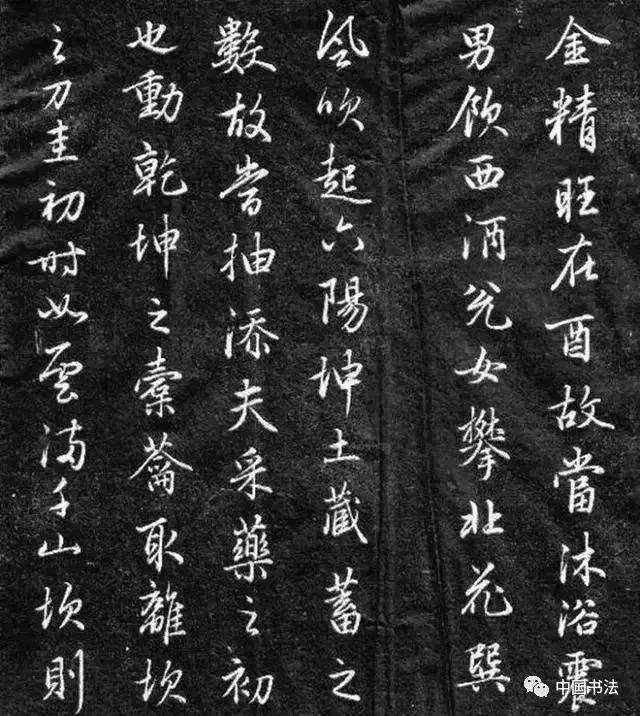 金精旺在酉故當沐浴震
男飲西酒兌女攀北花巽
風吹起六陽坤土藏蓄之
數故當抽添夫采藥之初
也動乾坤之橐籥取離坎
之刀圭初時如雲滿千山次則
中国书法